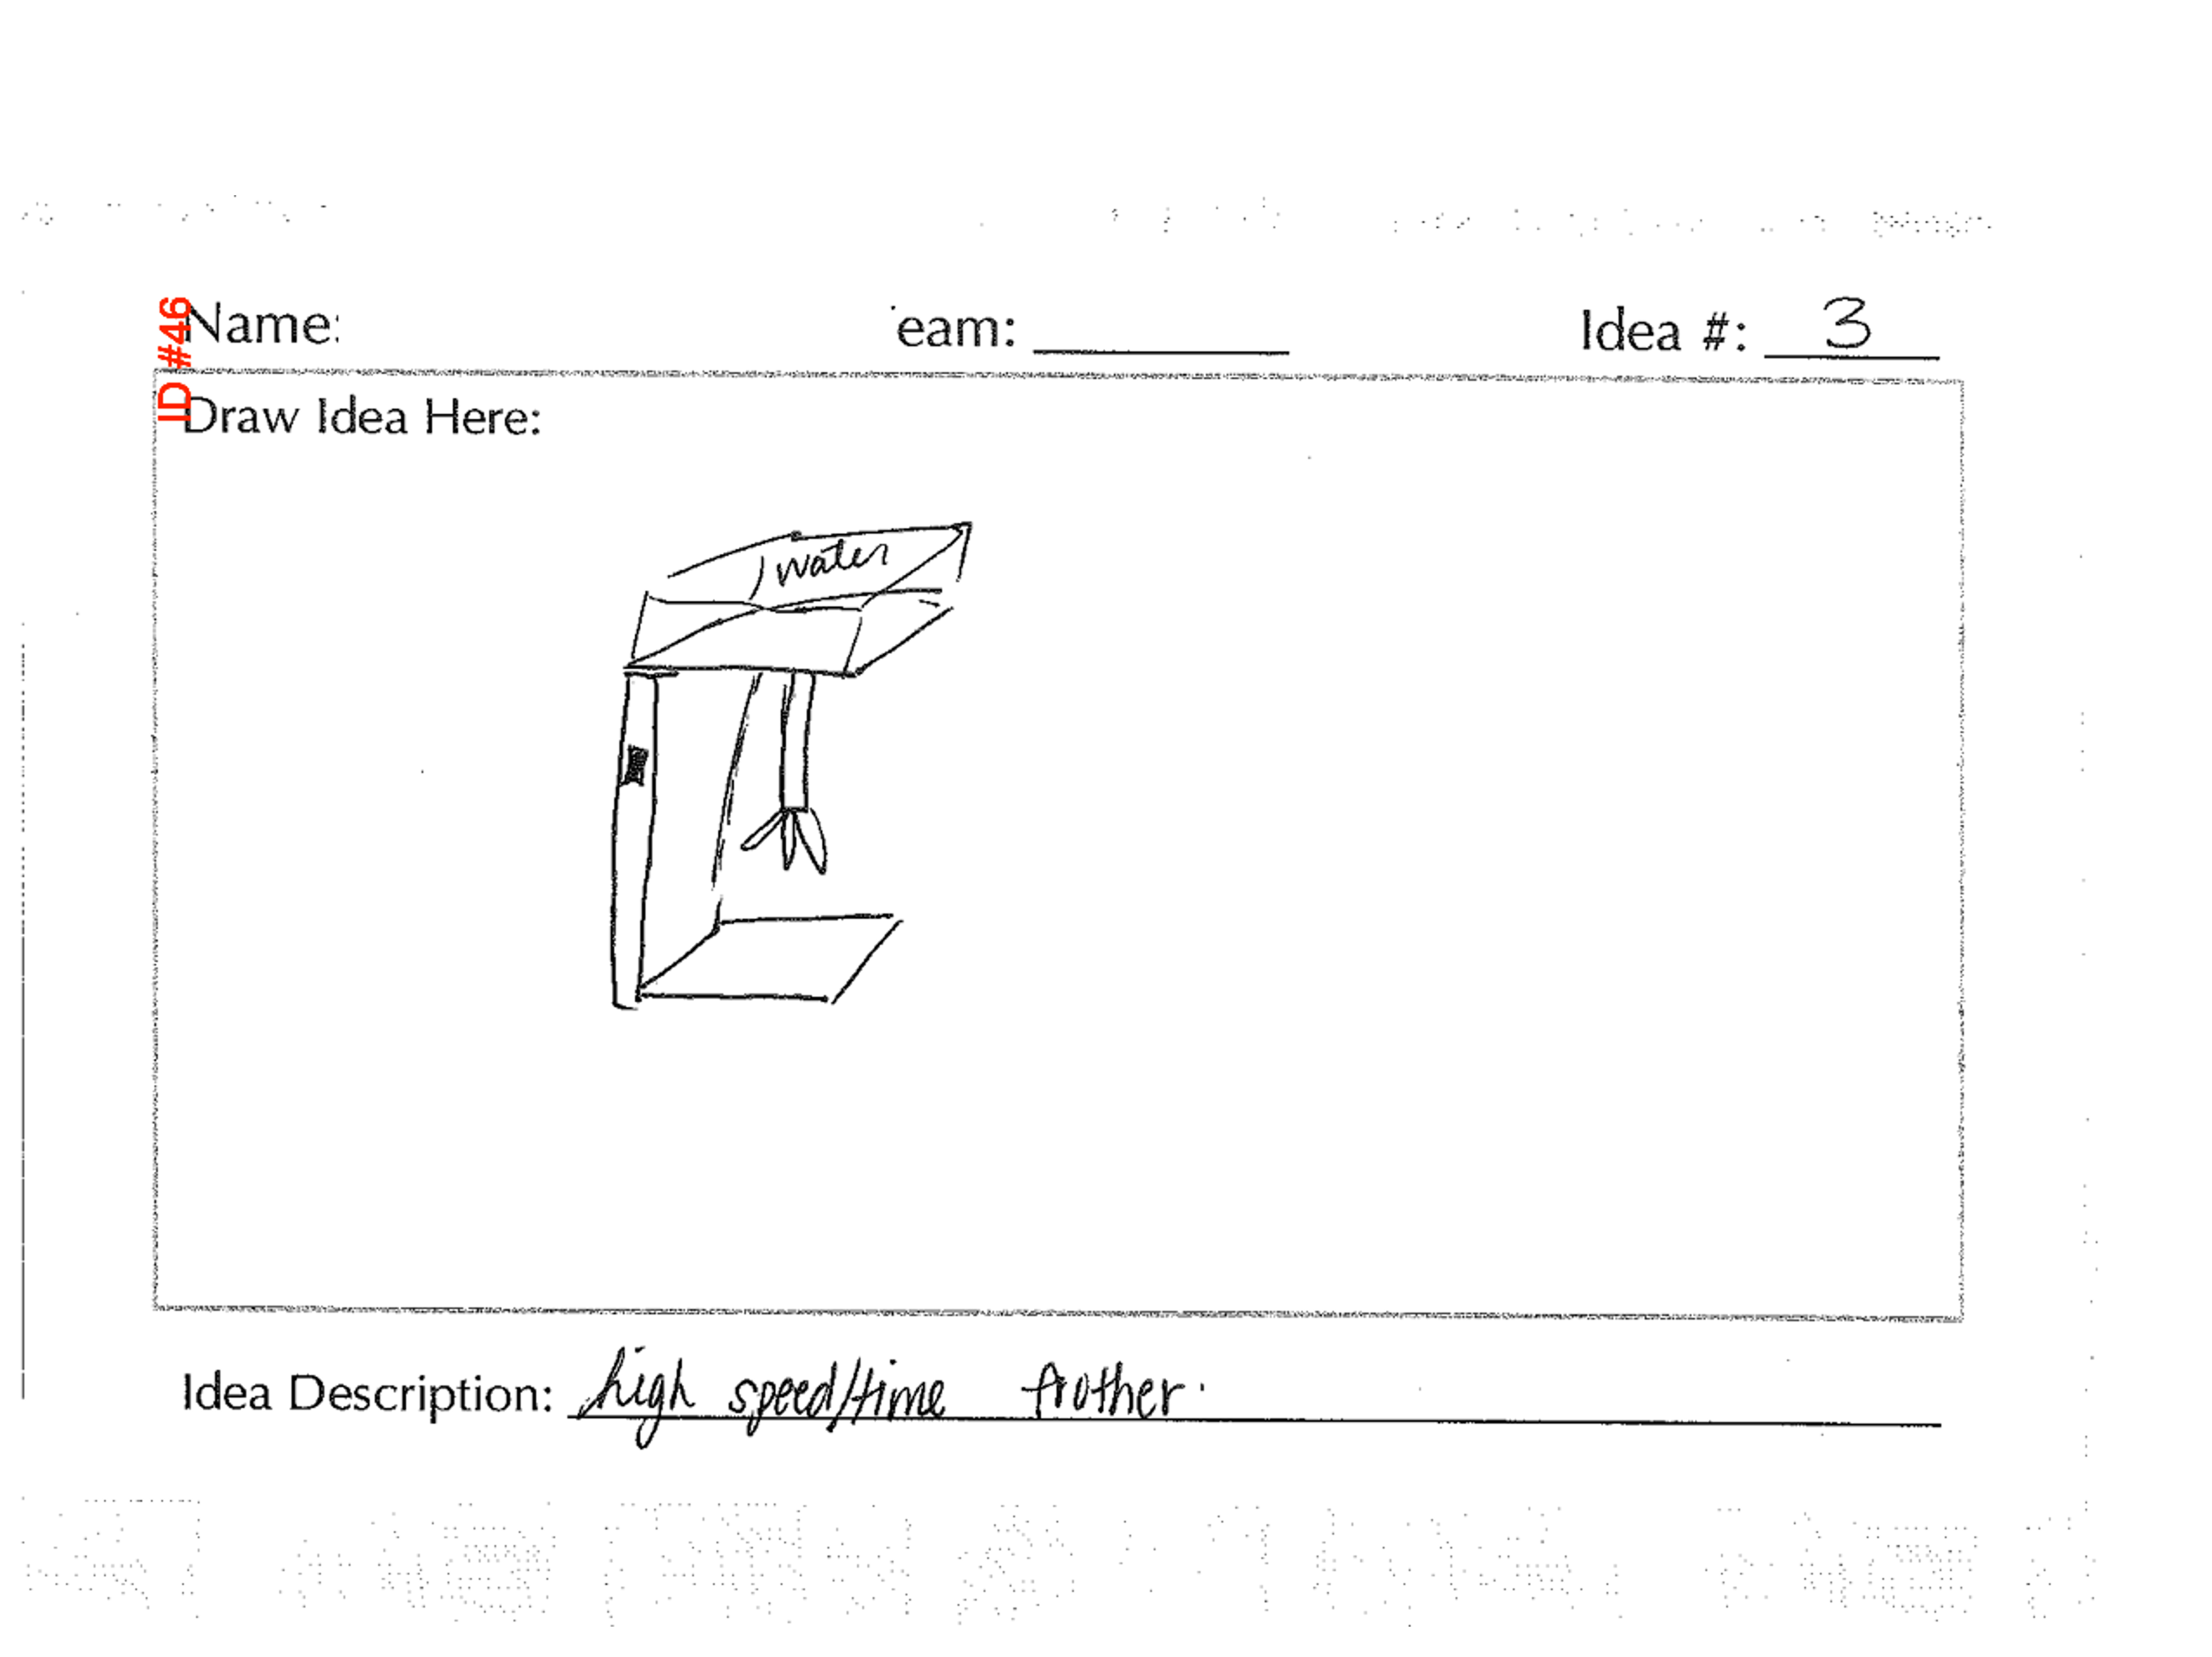 ID #46
Name: eam: Idea #: 3
Draw Idea Here:
water
Idea Description: high speed/time frother.